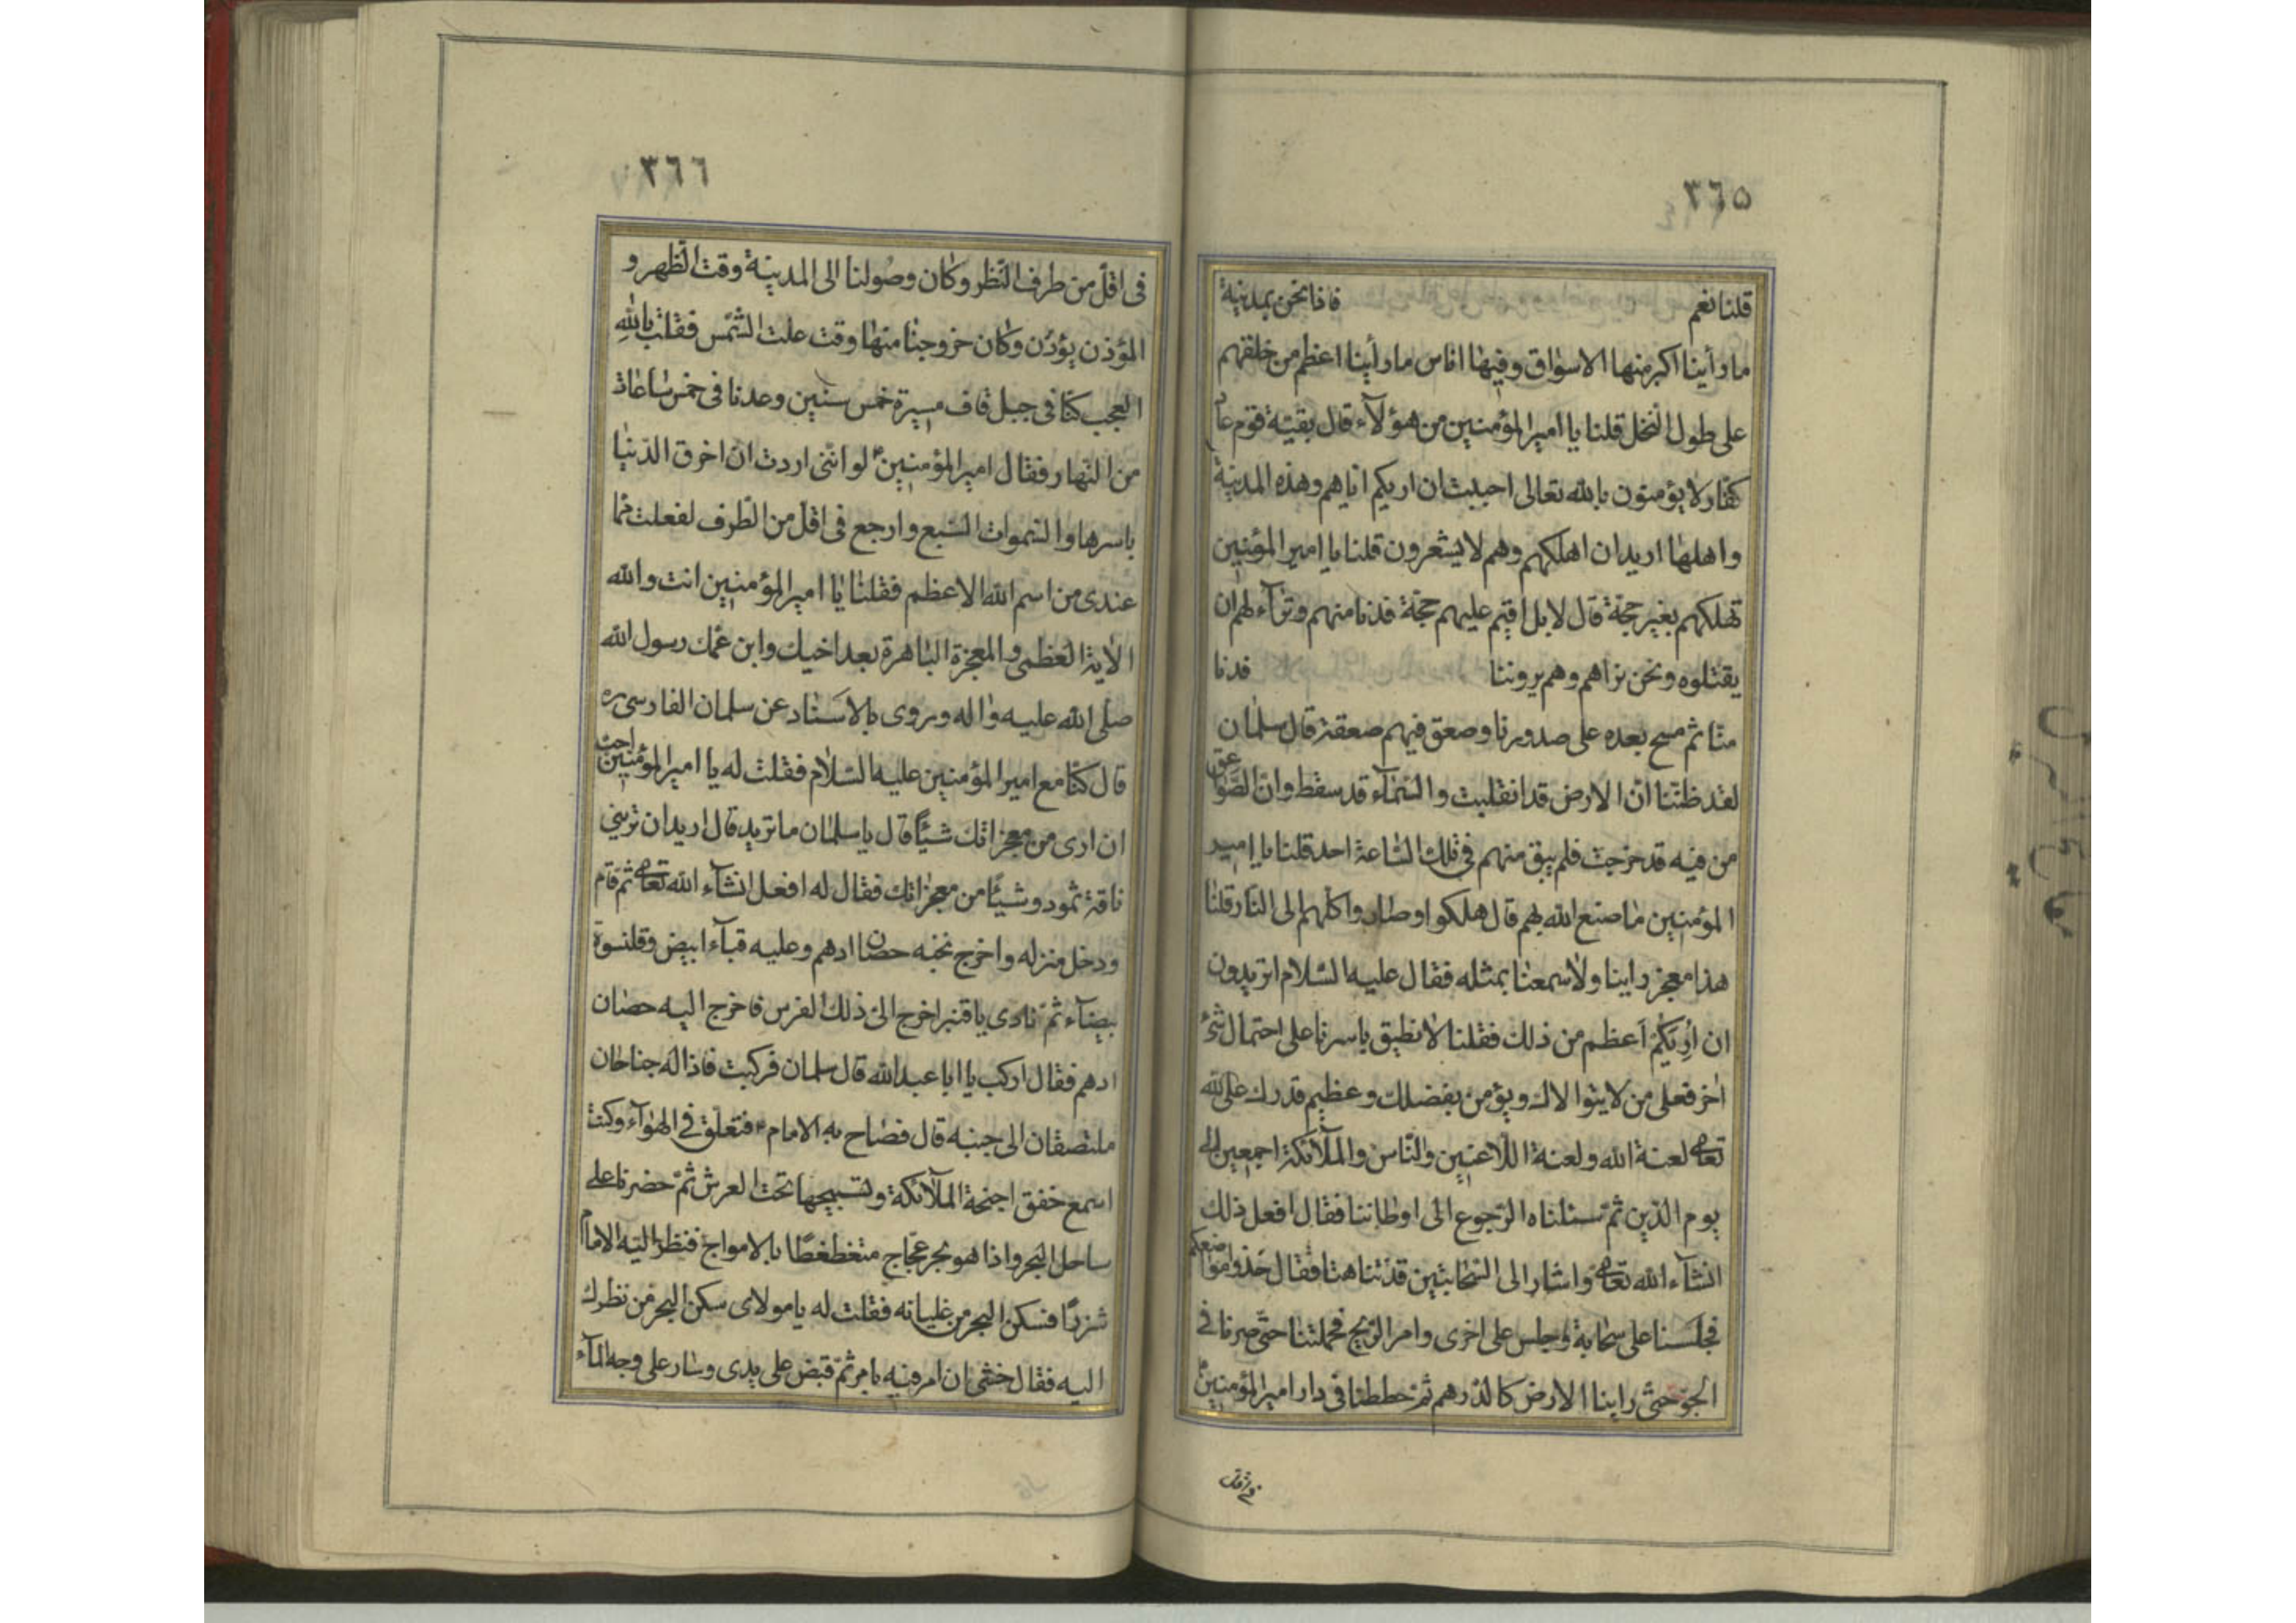 ٣٦٥
قلنا نعم فاذا نحن بمدينة
ما رأينا اكبر منها الاسواق وفيها اناس ما رأينا اعظم من خلقهم
على طول النخل قلنا يا امير المؤمنين من هؤلآء قال بقية قوم عاد
كفار لا يؤمنون بالله تعالى احببت ان اريكم اياهم وهذه المدينة
واهلها اريد ان اهلكهم وهم لا يشعرون قلنا يا امير المؤمنين
تهلكهم بغير حجة قال لا بل اقيم عليهم حجة فدنا منهم وترآء لهم ان
يقتلوه ونحن نراهم وهم يروننا فدنا
منا ثم مسح بيده على صدورنا وصعق فيهم صعقة قال سلمان
لقد ظننا ان الارض قد انقلبت والسمآء قد سقط وان الصواعق
من فيه قد خرجت فلم يبق منهم في تلك الساعة احد قلنا يا امير
المؤمنين ما صنع الله بهم قال هلكوا وصاروا كلهم الى النار قلنا
هذا معجز راينا ولا سمعنا بمثله فقال عليه السلام اتريدون
ان أريكم اعظم من ذلك فقلنا لا نطيق باسرنا على احتمال شئ
اخر فعلى من لا يتوالاك ويؤمن بفضلك وعظيم قدرك على الله
تعالى لعنة الله ولعنة اللاعنين والناس والملآئكة اجمعين الى
يوم الدين ثم سئلناه الرجوع الى اوطاننا فقال افعل ذلك
انشآء الله تعالى واشار الى السحابتين فدنتا هنا فقال خذوا مواضعكم
فجلسنا على سحابة وجلس على اخرى وامر الريح فحملتنا حتى صرنا في
الجو حتى راينا الارض كالدرهم ثم حططنا في دار امير المؤمنين
في اقل
٣٦٦
في اقل من طرف النظر وكان وصولنا الى المدينة وقت الظهر و
المؤذن يؤذن وكان خروجنا منها وقت علت الشمس فقلت بالله
العجب كنا في جبل قاف مسيرة خمس سنين وعدنا في خمس ساعات
من النهار فقال امير المؤمنين لو انني اردت ان اخرق الدنيا
باسرها والسموات السبع وارجع في اقل من الطرف لفعلت مما
عندي من اسم الله الاعظم فقلنا يا امير المؤمنين انت والله
الاية العظمى والمعجزة الباهرة بعد اخيك وابن عمك رسول الله
صلى الله عليه واله وروى بالاسناد عن سلمان الفارسي ره
قال كنا مع امير المؤمنين عليه السلام فقلت له يا امير المؤمنين احب
ان ارى من معجزاتك شيئا قال يا سلمان ما تريد قال اريد ان تريني
ناقة ثمود وشيئا من معجزاتك فقال له افعل انشآء الله تعالى ثم قام
ودخل منزله واخرج تحته حصان ادهم وعليه قبآء ابيض وقلنسوة
بيضآء ثم نادى يا قنبر اخرج الى ذلك الفرس فاخرج اليه حصان
ادهم فقال اركب يا ابا عبد الله قال سلمان فركبت فاذا له جناحان
ملتصقان الى جنبه قال فصاح به الامام فتعلق في الهوآء وكنت
اسمع خفق اجنحة الملآئكة وتسبيحها تحت العرش ثم حضرنا على
ساحل البحر واذا هو بحر عجاج متغطغطا بالامواج فنظر اليه الامام
شزرا فسكن البحر من غليانه فقلت له يا مولاى سكن البحر من نظرك
اليه فقال خشى ان امر فيه بامر ثم قبض على يدى وسار على وجه المآء